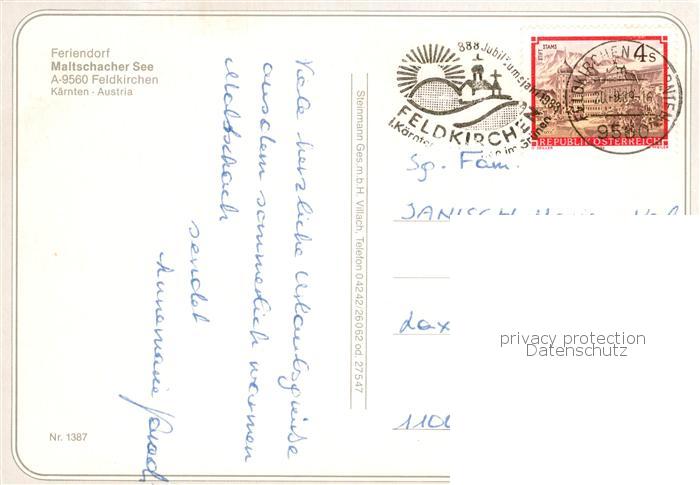 Feriendorf
Maltschacher See
A-9560 Feldkirchen
Kärnten - Austria
Viele herzliche Urlaubsgrüße
aus dem sommerlich warmen
Maltschach
sendet
Annemarie
Nr. 1387
Steinmann Ges.m.b.H. Villach, Telefon 04242/26062 od. 27547
888 Jubiläumsjahr 1988
FELDKIRCHEN
STIFT STAMS
4s
REPUBLIK ÖSTERREICH
FELDKIRCHEN
9560
Sg. Fam.
JANISCH
Lax
110
privacy protection
Datenschutz